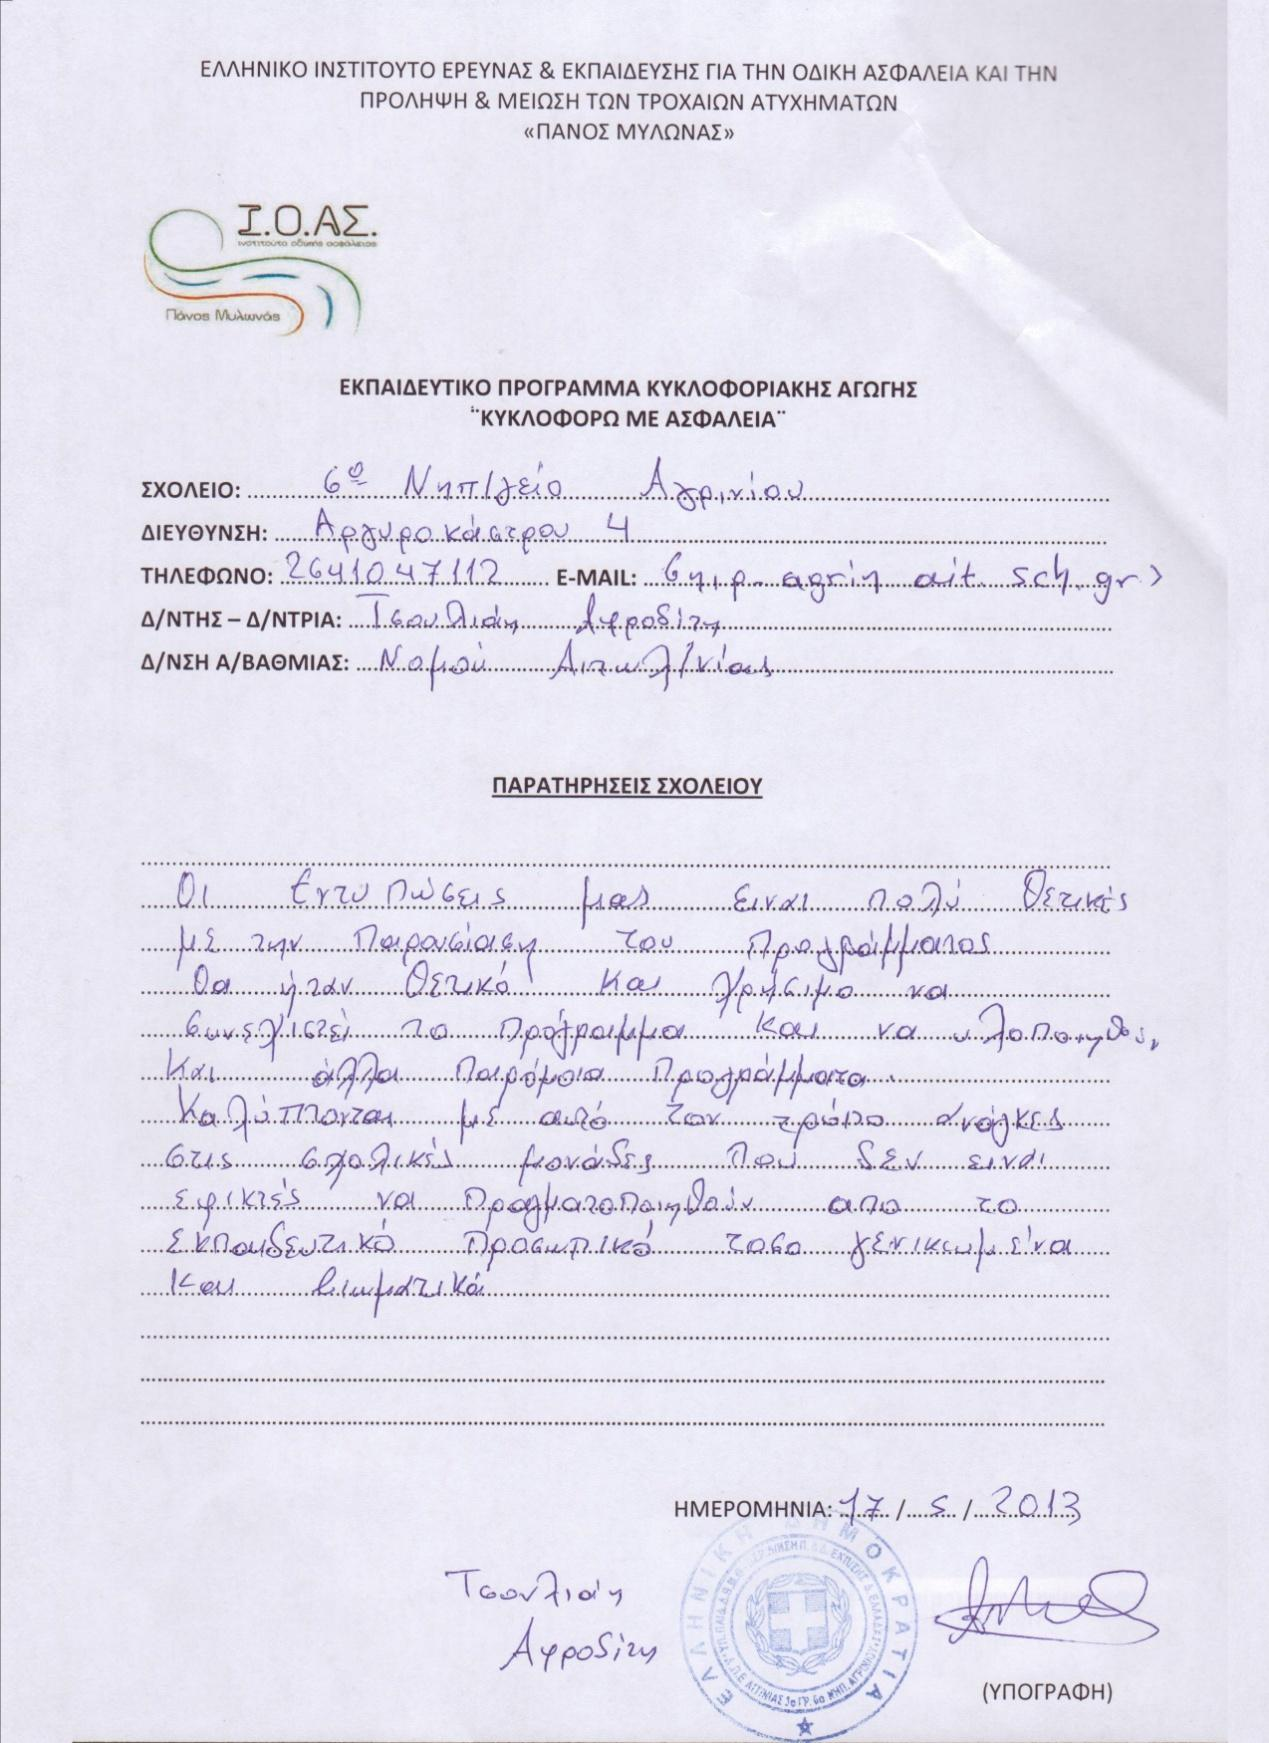 ΕΛΛΗΝΙΚΟ ΙΝΣΤΙΤΟΥΤΟ ΕΡΕΥΝΑΣ & ΕΚΠΑΙΔΕΥΣΗΣ ΓΙΑ ΤΗΝ ΟΔΙΚΗ ΑΣΦΑΛΕΙΑ ΚΑΙ ΤΗΝ
ΠΡΟΛΗΨΗ & ΜΕΙΩΣΗ ΤΩΝ ΤΡΟΧΑΙΩΝ ΑΤΥΧΗΜΑΤΩΝ
«ΠΑΝΟΣ ΜΥΛΩΝΑΣ»
Ι.Ο.ΑΣ.
ινστιτούτο οδικής ασφάλειας
Πάνος Μυλωνάς
ΕΚΠΑΙΔΕΥΤΙΚΟ ΠΡΟΓΡΑΜΜΑ ΚΥΚΛΟΦΟΡΙΑΚΗΣ ΑΓΩΓΗΣ
¨ΚΥΚΛΟΦΟΡΩ ΜΕ ΑΣΦΑΛΕΙΑ¨
ΣΧΟΛΕΙΟ: 6ο Νηπ/γείο Αγρινίου
ΔΙΕΥΘΥΝΣΗ: Αργυροκάστρου 4
ΤΗΛΕΦΩΝΟ: 2641047112 E-MAIL: ait. sch. gr
Δ/ΝΤΗΣ – Δ/ΝΤΡΙΑ: Τσουλιάη Αφροδίτη
Δ/ΝΣΗ Α/ΒΑΘΜΙΑΣ: Νομού Αιτωλ/νίας
ΠΑΡΑΤΗΡΗΣΕΙΣ ΣΧΟΛΕΙΟΥ
Οι Εντυπώσεις μας ειναι πολύ θετικές
με την Παρουσίαση του Προγράμματος
Θα ήταν θετικό Και χρήσιμο να
συνεχιστεί το Πρόγραμμα Και να υλοποιηθούν
Και άλλα Παρόμοια Προγράμματα.
Καλύπτονται με αυτό τον τρόπο ανάγκες
στις σχολικές μονάδες Που δεν ειναι
εφικτές να Πραγματοποιηθούν απο το
εκπαιδευτικό Προσωπικό τοσο γενικευμένα
Και βιωματικά
ΗΜΕΡΟΜΗΝΙΑ: 17 / 5 / 2013
Τσουλιάη
Αφροδίτη
ΕΛΛΗΝΙΚΗ ΔΗΜΟΚΡΑΤΙΑ
(ΥΠΟΓΡΑΦΗ)